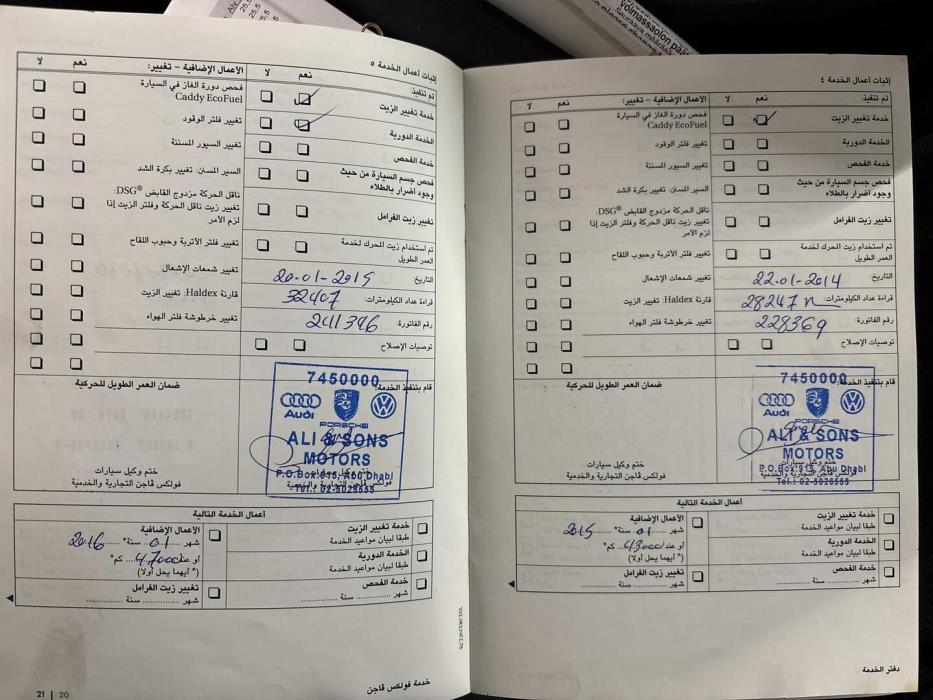 إثبات أعمال الخدمة ٤
تم تنفيذ: نعم لا
خدمة تغيير الزيت
الخدمة الدورية
خدمة الفحص
فحص جسم السيارة من حيث
وجود أضرار بالطلاء
تغيير زيت الفرامل
تم استخدام زيت المحرك لخدمة
العمر الطويل
التاريخ: 22-01-2014
قراءة عداد الكيلومترات: 28247
رقم الفاتورة: 228369
توصيات الإصلاح
الأعمال الإضافية – تغيير: نعم لا
فحص دورة الغاز في السيارة
Caddy EcoFuel
تغيير فلتر الوقود
تغيير السيور المسننة
السير المسنن: تغيير بكرة الشد
ناقل الحركة مزدوج القابض DSG®:
تغيير زيت ناقل الحركة وفلتر الزيت إذا
لزم الأمر
تغيير فلتر الأتربة وحبوب اللقاح
تغيير شمعات الإشعال
قارنة Haldex: تغيير الزيت
تغيير خرطوشة فلتر الهواء
قام بتنفيذ الخدمة:
7450000
Audi
PORSCHE
ALI & SONS
MOTORS
P.O.Box:915, Abu Dhabi
Tel.: 02-5025555
ضمان العمر الطويل للحركية
ختم وكيل سيارات
فولكس ڤاجن التجارية والخدمية
أعمال الخدمة التالية
خدمة تغيير الزيت
طبقا لبيان مواعيد الخدمة
الخدمة الدورية
طبقا لبيان مواعيد الخدمة
خدمة الفحص
شهر ............ سنة ............
الأعمال الإضافية
شهر 01 سنة* 2015
أو عند 43000 كم*
(* أيهما يحل أولا)
تغيير زيت الفرامل
شهر ............ سنة ............
دفتر الخدمة
إثبات أعمال الخدمة ٥
تم تنفيذ: نعم لا
خدمة تغيير الزيت
الخدمة الدورية
خدمة الفحص
فحص جسم السيارة من حيث
وجود أضرار بالطلاء
تغيير زيت الفرامل
تم استخدام زيت المحرك لخدمة
العمر الطويل
التاريخ: 20-01-2015
قراءة عداد الكيلومترات: 32407
رقم الفاتورة: 241396
توصيات الإصلاح
الأعمال الإضافية – تغيير: نعم لا
فحص دورة الغاز في السيارة
Caddy EcoFuel
تغيير فلتر الوقود
تغيير السيور المسننة
السير المسنن: تغيير بكرة الشد
ناقل الحركة مزدوج القابض DSG®:
تغيير زيت ناقل الحركة وفلتر الزيت إذا
لزم الأمر
تغيير فلتر الأتربة وحبوب اللقاح
تغيير شمعات الإشعال
قارنة Haldex: تغيير الزيت
تغيير خرطوشة فلتر الهواء
قام بتنفيذ الخدمة:
7450000
Audi
PORSCHE
ALI & SONS
MOTORS
P.O.Box:915, Abu Dhabi
Tel.: 02-5025555
ضمان العمر الطويل للحركية
ختم وكيل سيارات
فولكس ڤاجن التجارية والخدمية
أعمال الخدمة التالية
خدمة تغيير الزيت
طبقا لبيان مواعيد الخدمة
الخدمة الدورية
طبقا لبيان مواعيد الخدمة
خدمة الفحص
شهر ............ سنة ............
الأعمال الإضافية
شهر 01 سنة* 2016
أو عند 47000 كم*
(* أيهما يحل أولا)
تغيير زيت الفرامل
شهر ............ سنة ............
خدمة فولكس ڤاجن
21 | 20